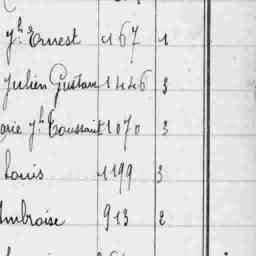 Jh Ernest 167 1
Julien Gustave 1446 3
arie Jh Toussaint 1070 3
Louis 1199 3
Ambroise 913 2